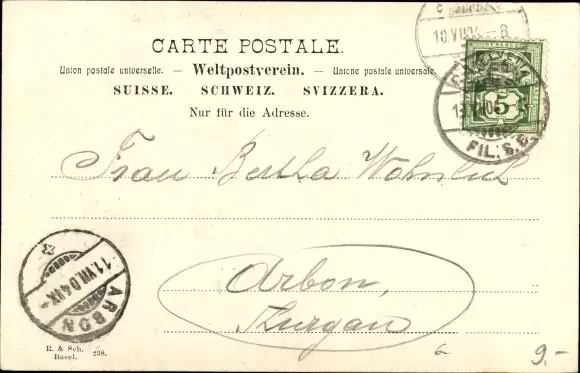 10.VII.04 – 8
CARTE POSTALE.
Union postale universelle. — Weltpostverein. — Unione postale universale
SUISSE. SCHWEIZ. SVIZZERA.
Nur für die Adresse.
FRANCO
5
FIL. S.B.
Frau Bertha Wohnlich
Arbon,
Thurgau
11.VII.04.IX
ARBON
R. & Sch.
Basel. 238.
9.-